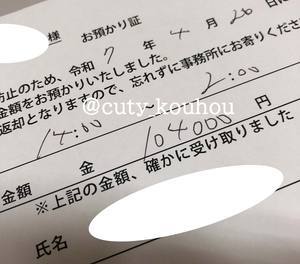 様 お預かり証
防止のため、令和 7 年 4 月 26 日に
金額をお預かりいたしました。
返却となりますので、忘れずに事務所にお寄りくださ
14:00 2:00
@cuty_kouhou
金額 金 104000 円
※上記の金額、確かに受け取りました
氏名